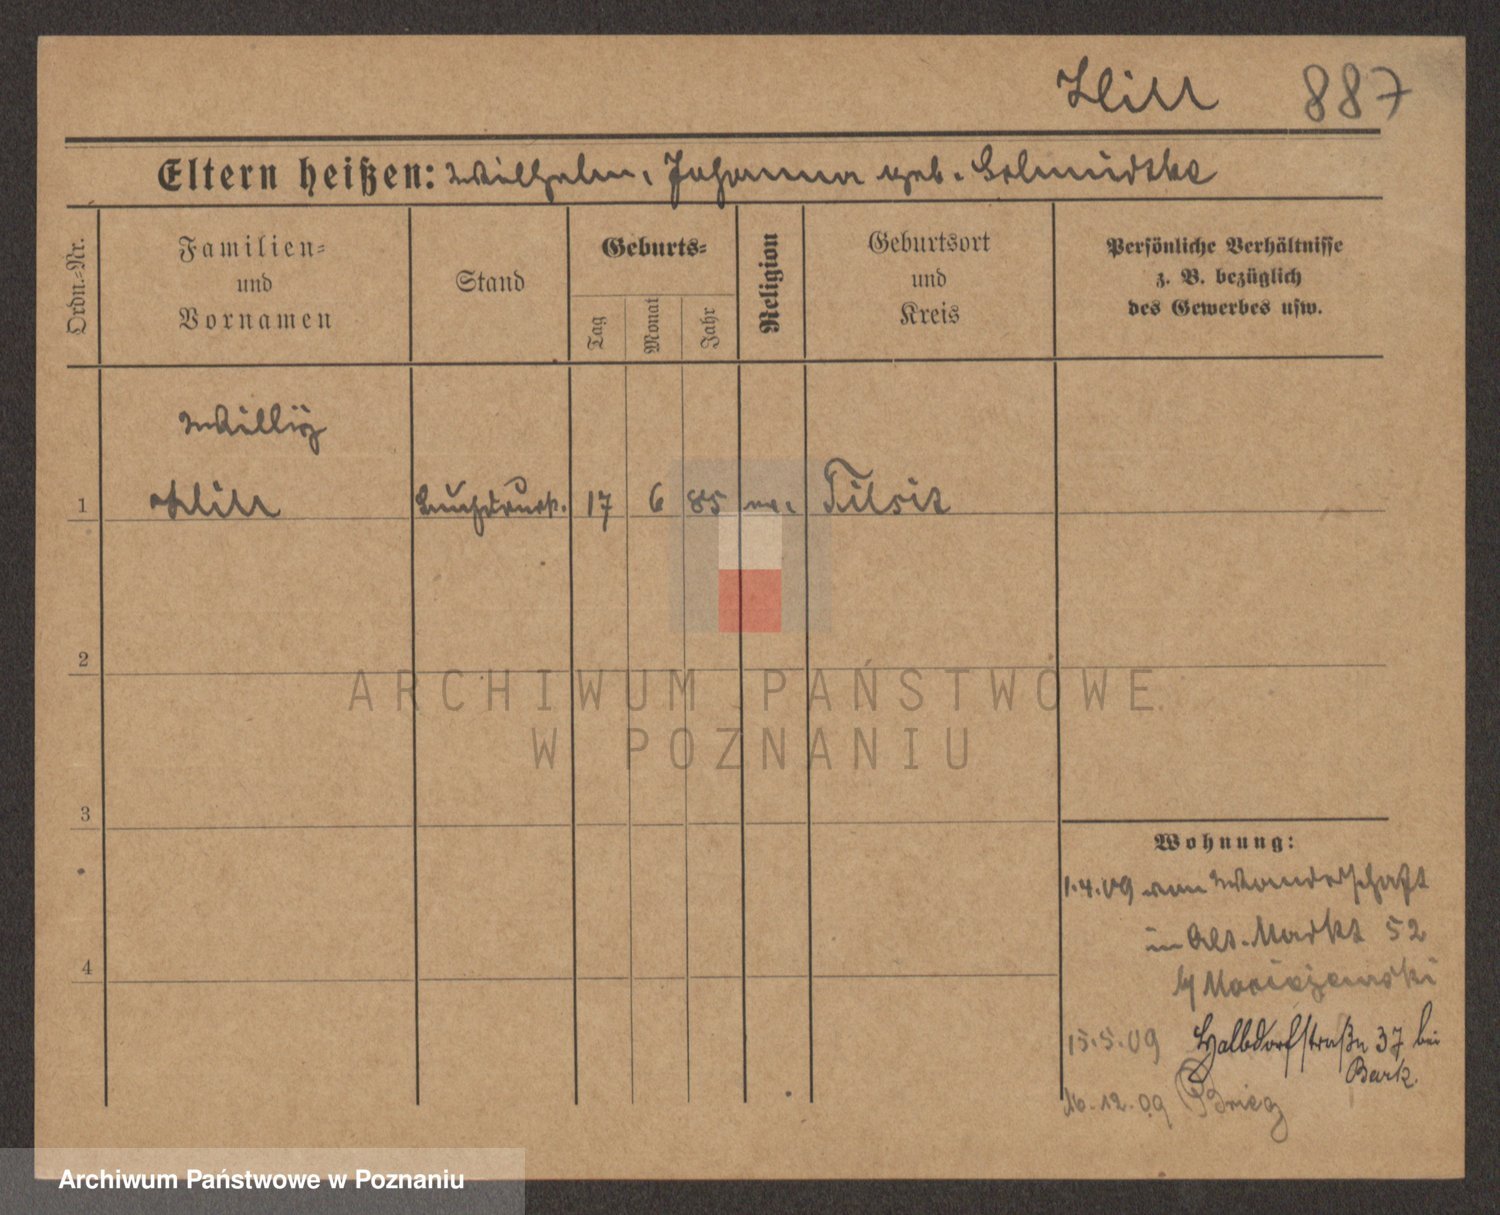 887
Eltern heißen: Wilhelm, Johanna geb.
Ordn.-Nr.
Familien-
und
Vornamen
Stand
Geburts-
Tag
Monat
Jahr
Religion
Geburtsort
und
Kreis
Persönliche Verhältnisse
z. B. bezüglich
des Gewerbes usw.
Willÿ
1 17 6 85 ev. Tilsit
2
3
4
ARCHIWUM PAŃSTWOWE
W POZNANIU
Wohnung:
1.4.09 von Wanderschaft
in Alt. Markt 52
15.5.09 Halbdorfstraße 37 bei
Bark.
16.12.09 Brieg
Archiwum Państwowe w Poznaniu